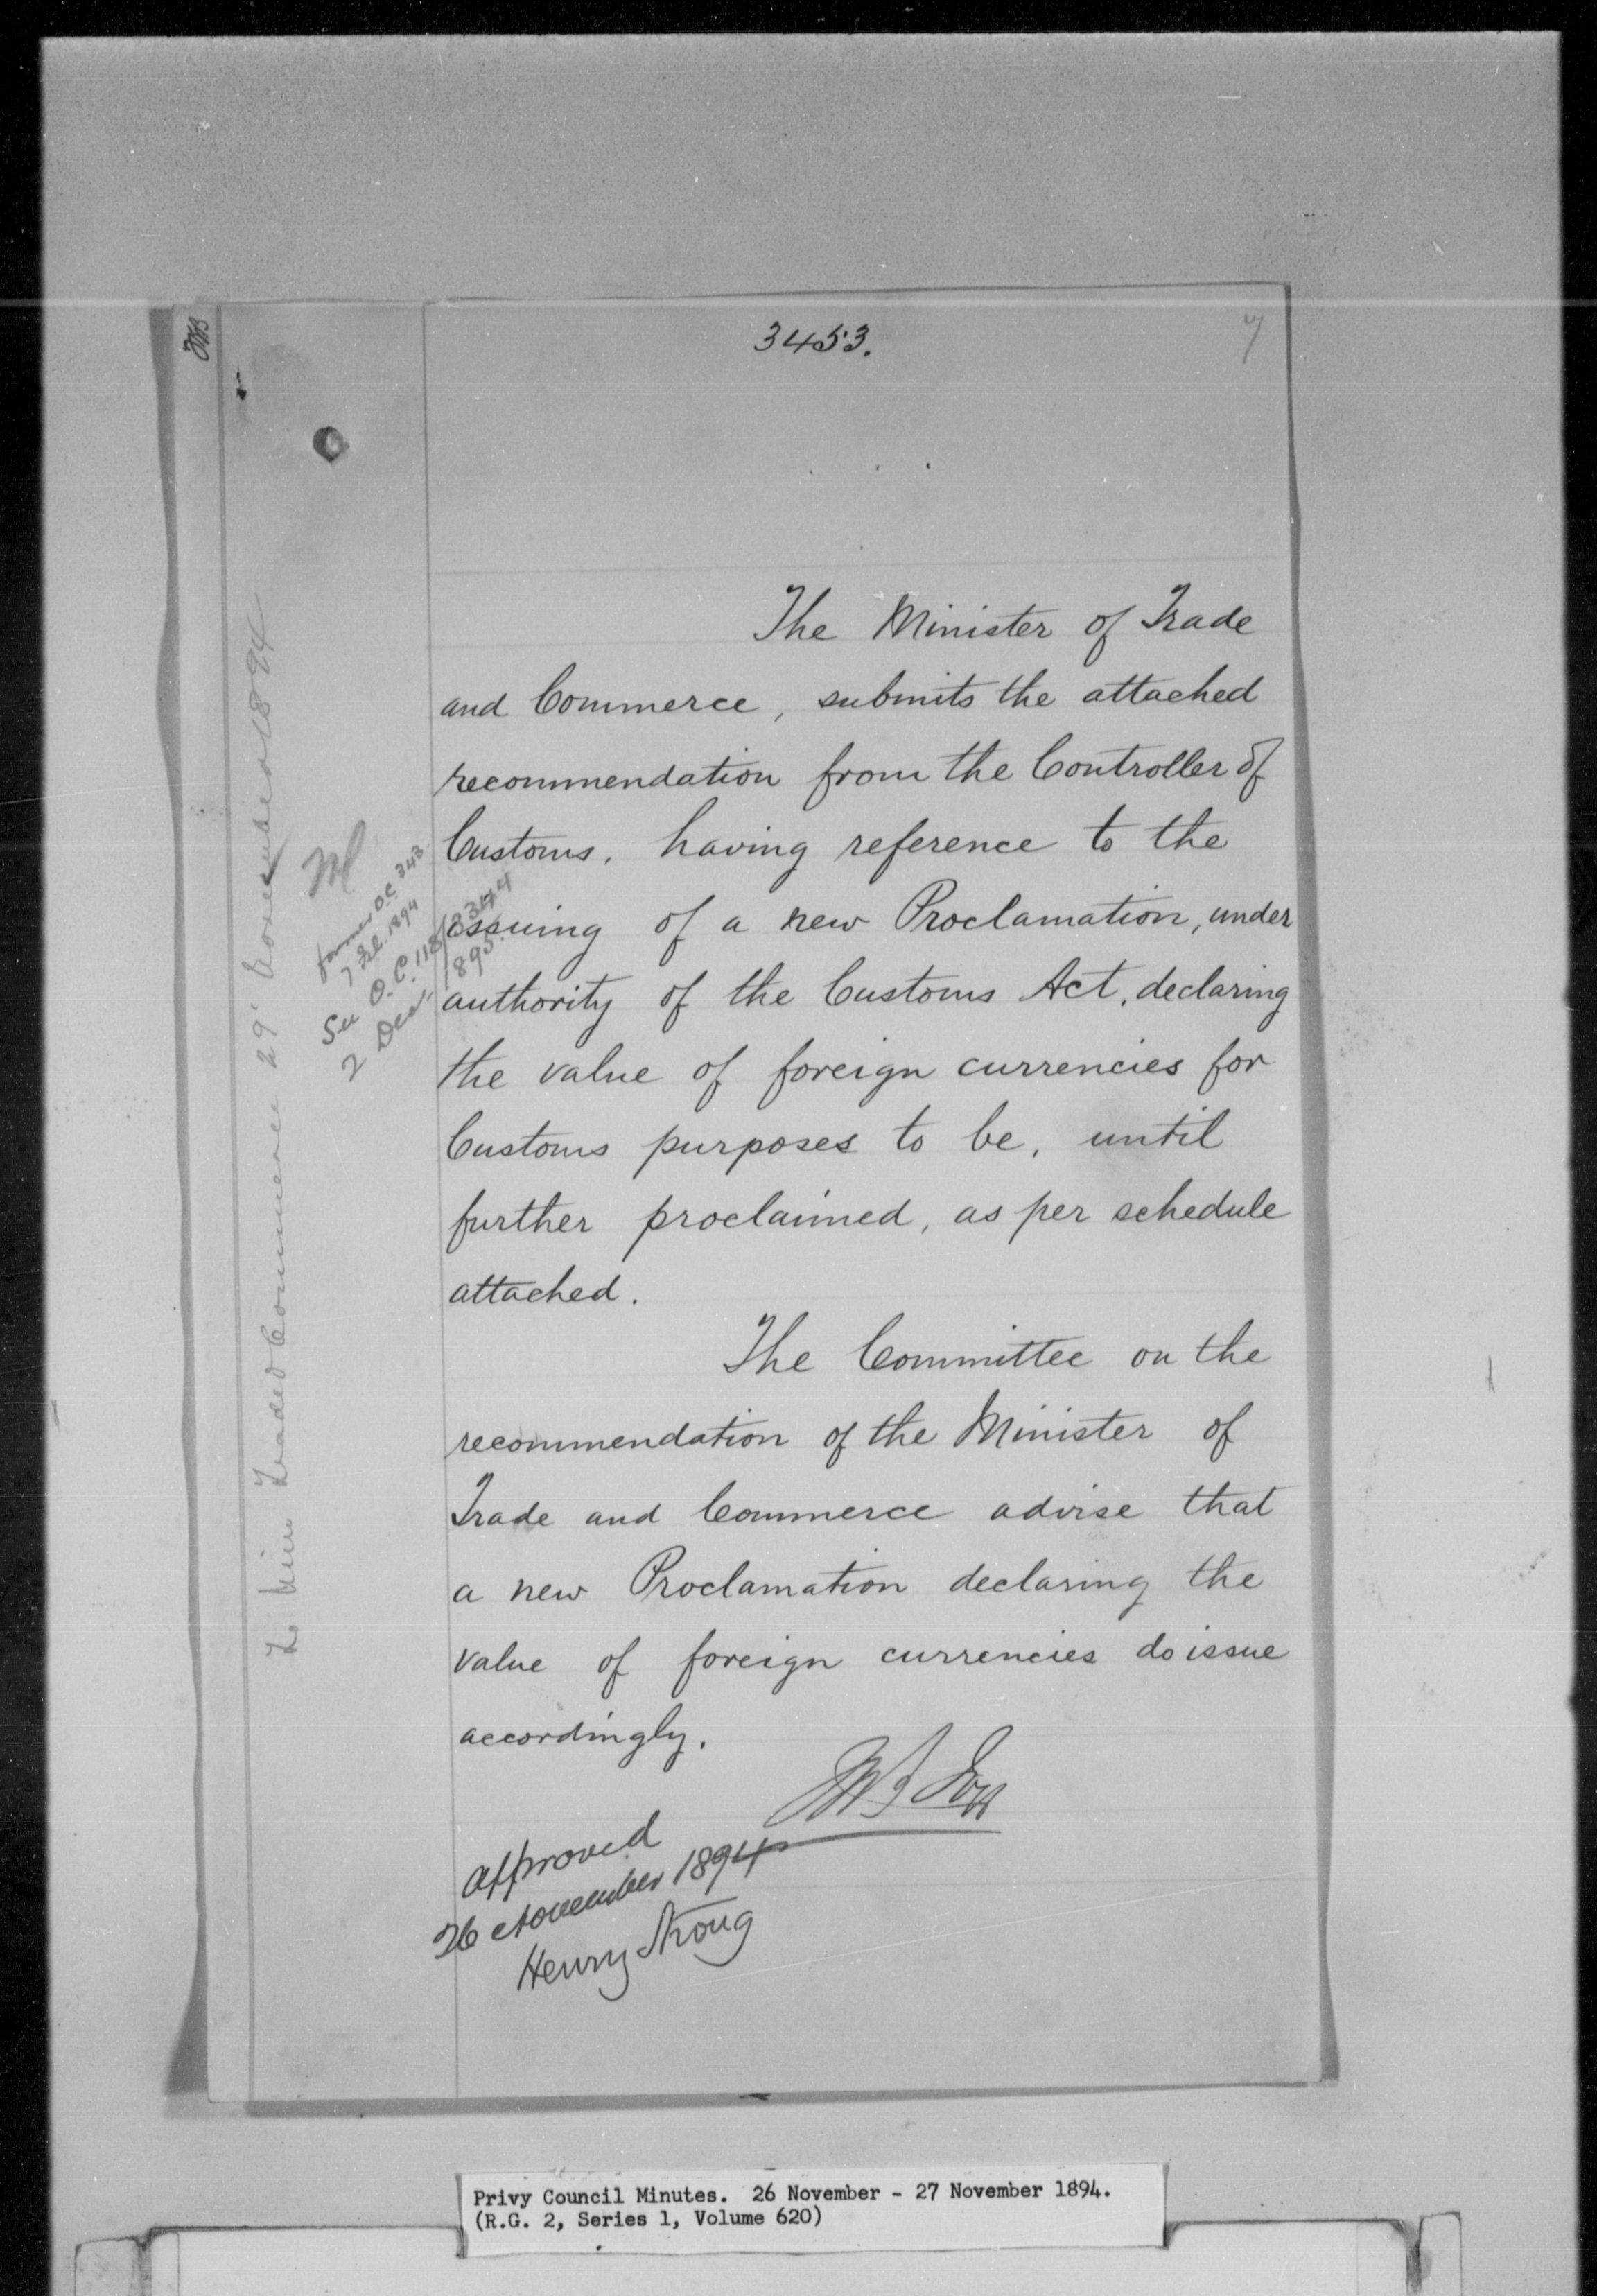 3453.
7
The Minister of Trade
and Commerce, submits the attached
recommendation from the Controller of
Customs, having reference to the
issuing of a new Proclamation, under
authority of the Customs Act, declaring
the value of foreign currencies for
Customs purposes to be, until
further proclaimed, as per schedule
attached.
The Committee on the
recommendation of the Minister of
Trade and Commerce advise that
a new Proclamation declaring the
value of foreign currencies do issue
accordingly.
approved
26 November 1894
Henry Strong
To Min Trade & Commerce 29' November 1894
former O.C. 343
7 Feb. 1894
See O.C.
2 Dec. 1895.
Privy Council Minutes. 26 November - 27 November 1894.
(R.G. 2, Series 1, Volume 620)